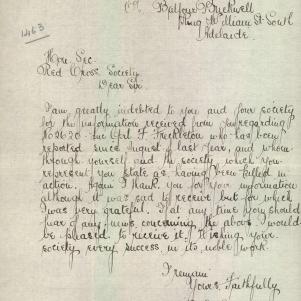 1463
Balfour & Bucknell
King William St. South
Adelaide.
Hon. Sec.
Red Cross Society
Dear Sir
I am greatly indebted to you and your society
for the information received from you regarding
Cpl. F. Freckleton who has been
reported since August of last year, and whom
through yourself and the society which you
represent you state as having been killed in
action. Again I thank you for your information
although it was sad to receive but for which
I was very grateful. If at any time you should
hear of any news concerning the above I would
be pleased to receive it. Wishing your
society every success in its noble work.
I remain
Yours Faithfully